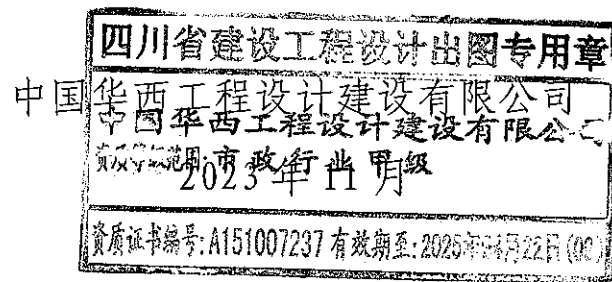 四川省建设工程设计出图专用章
中国华西工程设计建设有限公司
中国华西工程设计建设有限公司
资质等级范围:市政行业甲级
2023年11月
资质证书编号:A151007237有效期至:2025年04月22日